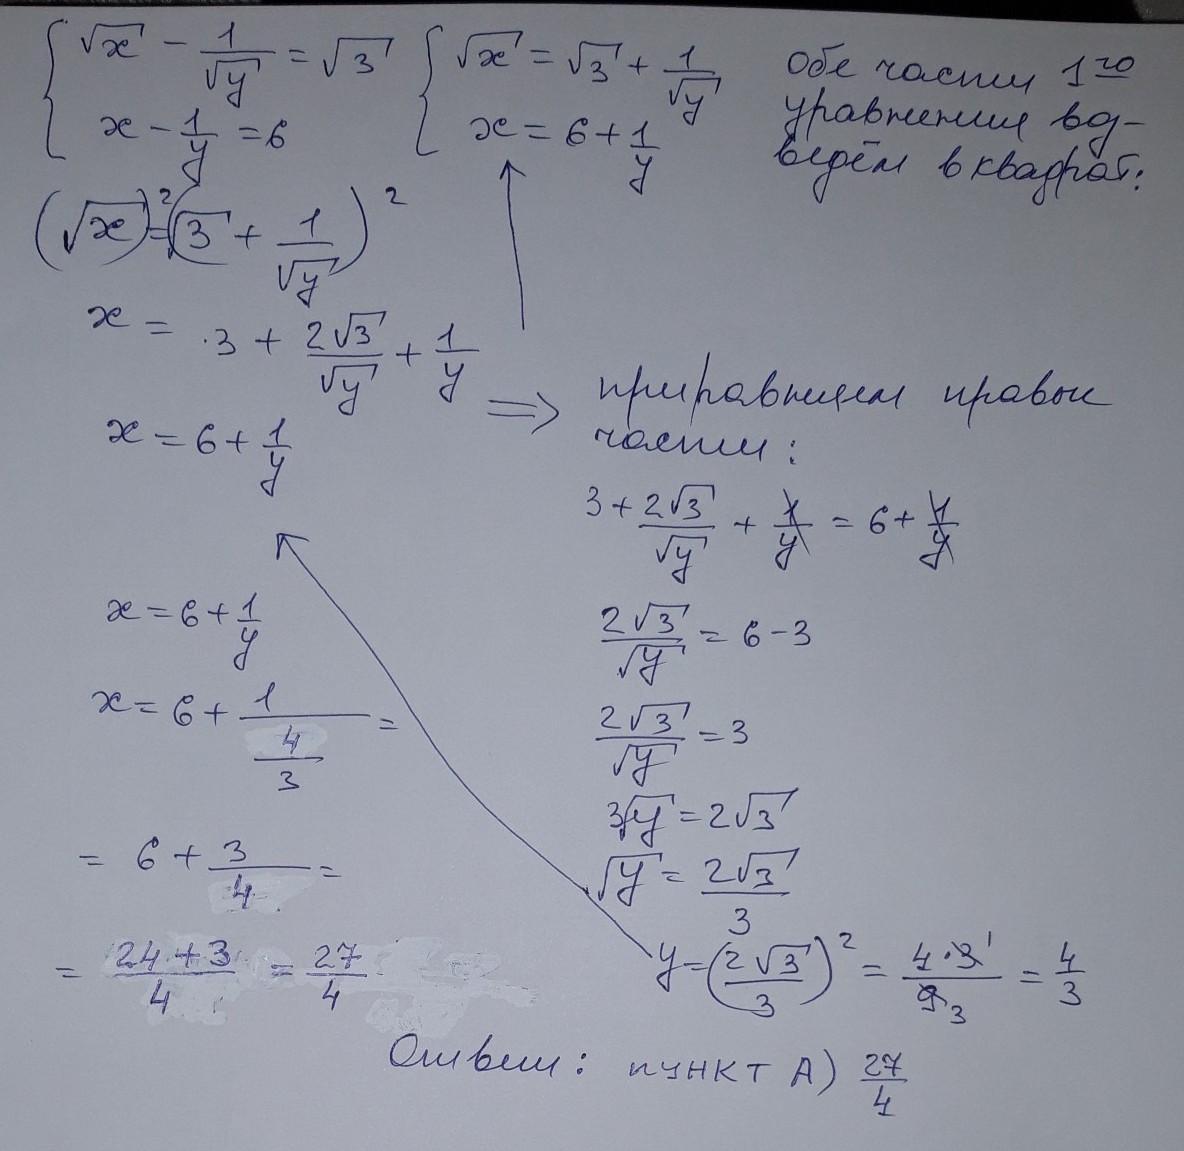 { √x - 1/√y = √3 { √x = √3 + 1/√y Обе части 1го
x - 1/y = 6 x = 6 + 1/y уравнения воз-
ведём в квадрат:
(√x)² = (√3 + 1/√y)²
x = 3 + 2√3/√y + 1/y
x = 6 + 1/y
⇒ приравняем правые
части:
3 + 2√3/√y + 1/y = 6 + 1/y
2√3/√y = 6 - 3
2√3/√y = 3
3√y = 2√3
√y = 2√3/3
y = (2√3/3)² = 4·3 1/9 3 = 4/3
x = 6 + 1/y
x = 6 + 1/(4/3) =
= 6 + 3/4 =
= (24 + 3)/4 = 27/4
Ответ: пункт А) 27/4